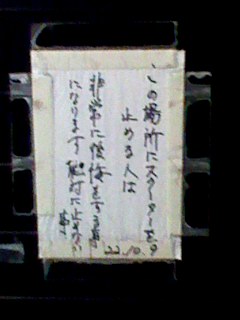 この場所にスクーターを
止める人は
非常に後悔をする事
になります。絶対に止めない
事。
22.10.